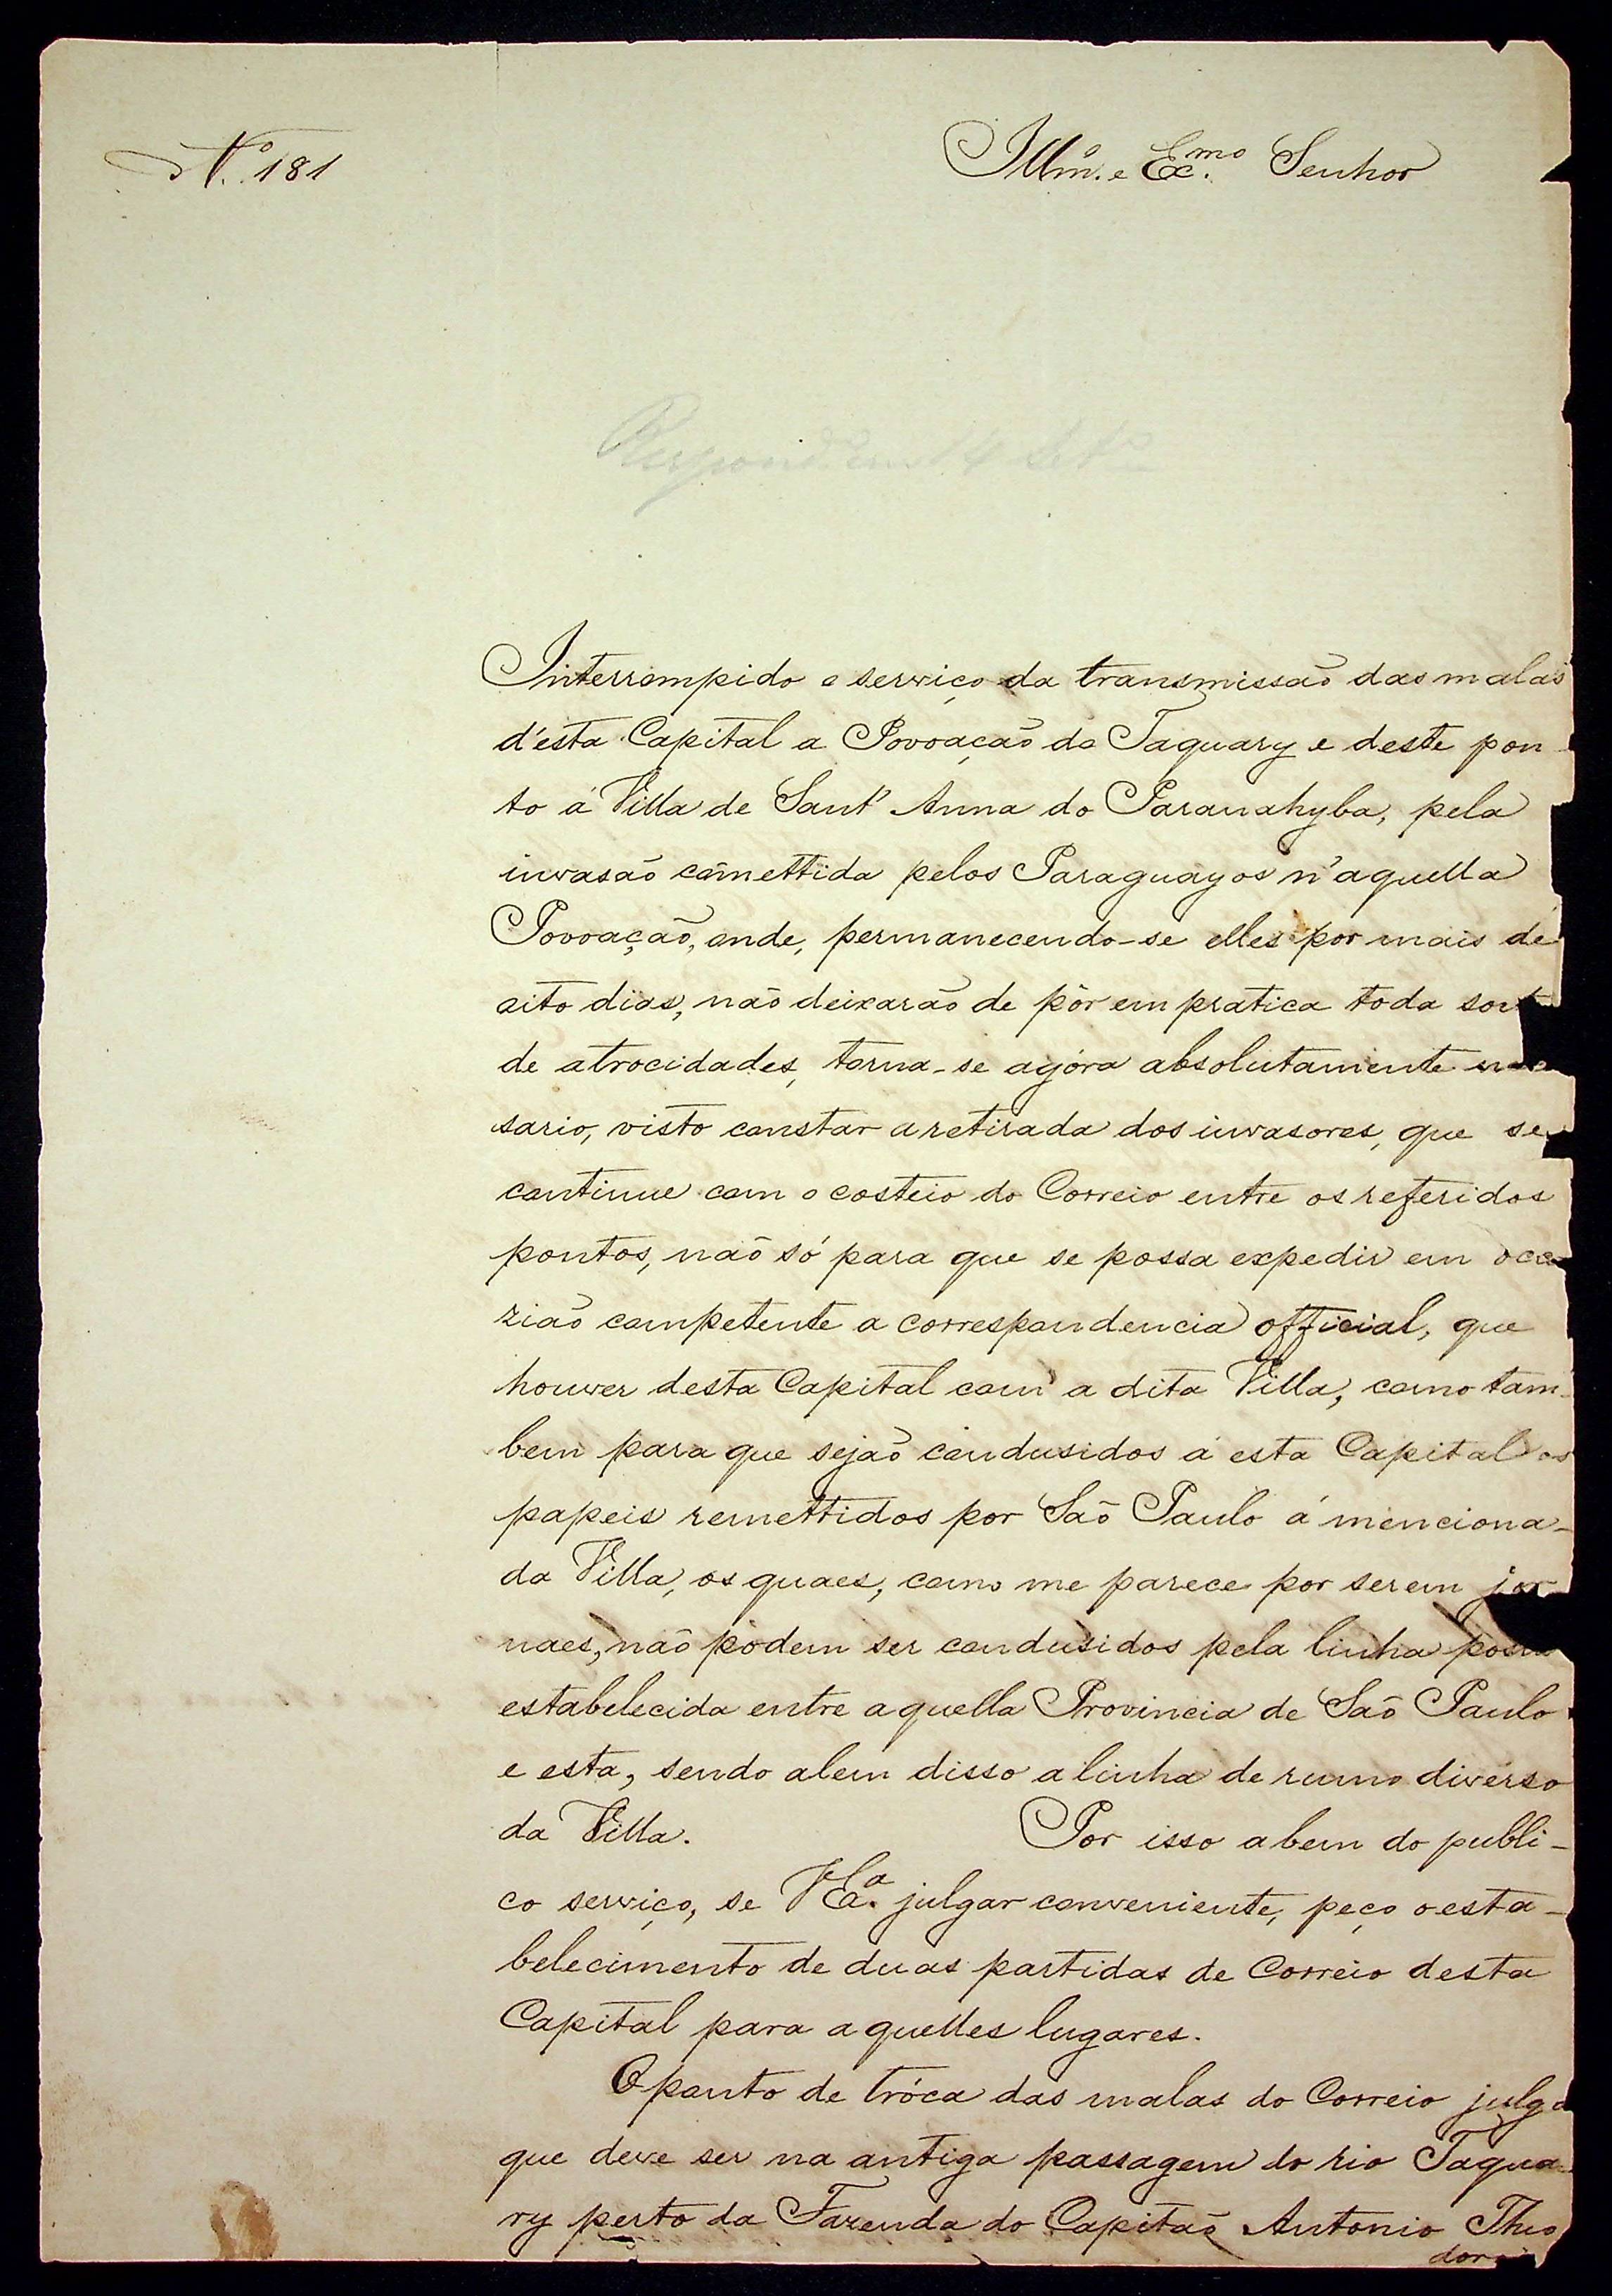 Nº 181
Illmº. e Exmo. Senhor
Respond. em 14 Setº
Interrompido o serviço da transmissão das malas
d'esta Capital a Povoação do Taquary e deste pon-
to á Villa de Sant' Anna do Paranahyba, pela
invasão cõmettida pelos Paraguayos n'aquella
Povoação, onde, permanecendo-se elles por mais de
oito dias, não deixarão de pôr em pratica toda
de atrocidades, torna-se agóra absolutamente
sario, visto constar a retirada dos invasores, que se
continue com o costeio do Correio entre os referidos
pontos, não só para que se possa expedir em occa
zião competente a correspondencia official, que
houver desta Capital com a dita Villa, como tam-
bem para que sejão condusidos á esta Capital os
papeis remettidos por São Paulo á menciona-
da Villa, os quaes, como me parece por serem jor
naes, não pódem ser condusidos pela linha
estabelecida entre aquella Provincia de São Paulo
e esta, sendo alem disso a linha de rumo diverso
da Villa. Por isso a bem do publi-
co serviço, se VExª. julgar conveniente, peço o esta-
belecimento de duas partidas de Correio desta
Capital para aquelles lugares.
O ponto de tróca das malas do Correio julgo
que deve ser na antiga passagem do rio Taqua-
ry perto da Fazenda do Capitão Antonio Theo
doro